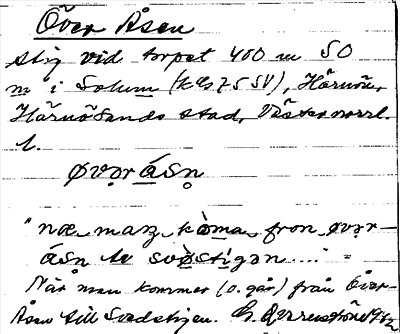 Över Åsen
stig vid torpet 400 m SO
m i Solum (kbs 75 SV), Härnön,
Härnösands stad, Västernorrl.
l.
øvạrásṇ
"næ manz kòma fron øvạr-
ásn te svòstigan....." =
När man kommer (o. går) från Över-
Åsen till Svedstigen.